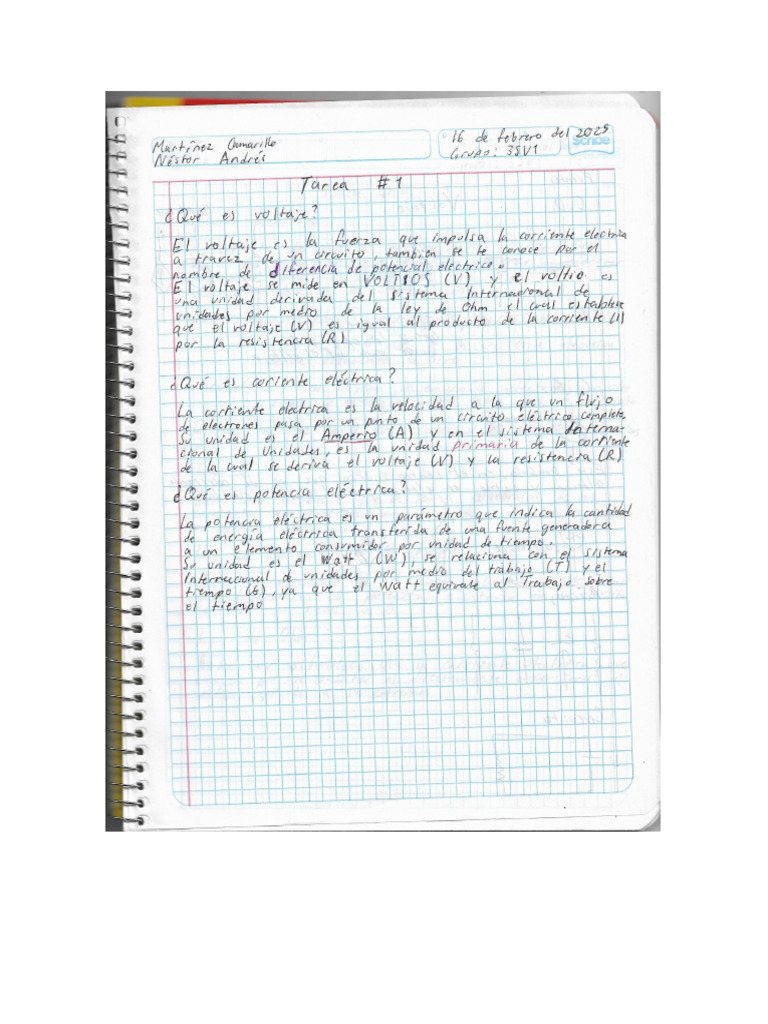 Martínez Camarillo
Néstor Andrés
16 de febrero del 2025
Grupo: 3SV1
Scribe
Tarea #1
¿Qué es voltaje?
El voltaje es la fuerza que impulsa la corriente electrica
a travez de un circuito, tambien se le conoce por el
nombre de diferencia de potencial electrico.
El voltaje se mide en VOLTIOS (V) y el voltio es
una unidad derivada del sistema Internacional de
unidades por medio de la ley de Ohm el cual establece
que el voltaje (V) es igual al producto de la corriente (I)
por la resistencia (R)
¿Qué es coriente eléctrica?
La corriente electrica es la velocidad a la que un flujo
de electrones pasa por un punto de un circuito eléctrico completo
Su unidad es el Amperio (A) y en el sistema interna-
cional de Unidades, es la unidad primaria de la corriente
de la cual se deriva el voltaje (V) y la resistencia (R)
¿Qué es potencia eléctrica?
La potencia eléctrica es un parámetro que indica la cantidad
de energía eléctrica transferida de una fuente generadora
a un elemento consumidor por unidad de tiempo.
Su unidad es el Watt (W), se relaciona con el sistema
Internacional de unidades por medio del trabajo (T) y el
tiempo (t), ya que el Watt equivale al Trabajo sobre
el tiempo